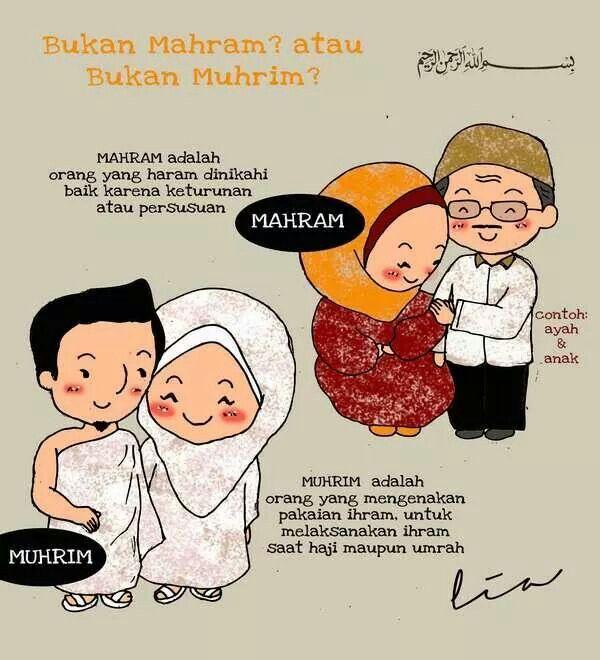 Bukan Mahram? atau
Bukan Muhrim?
بسم الله الرحمن الرحيم
MAHRAM adalah
orang yang haram dinikahi
baik karena keturunan
atau persusuan
MAHRAM
contoh:
ayah
&
anak
MUHRIM adalah
orang yang mengenakan
pakaian ihram, untuk
melaksanakan ihram
saat haji maupun umrah
MUHRIM
Lia